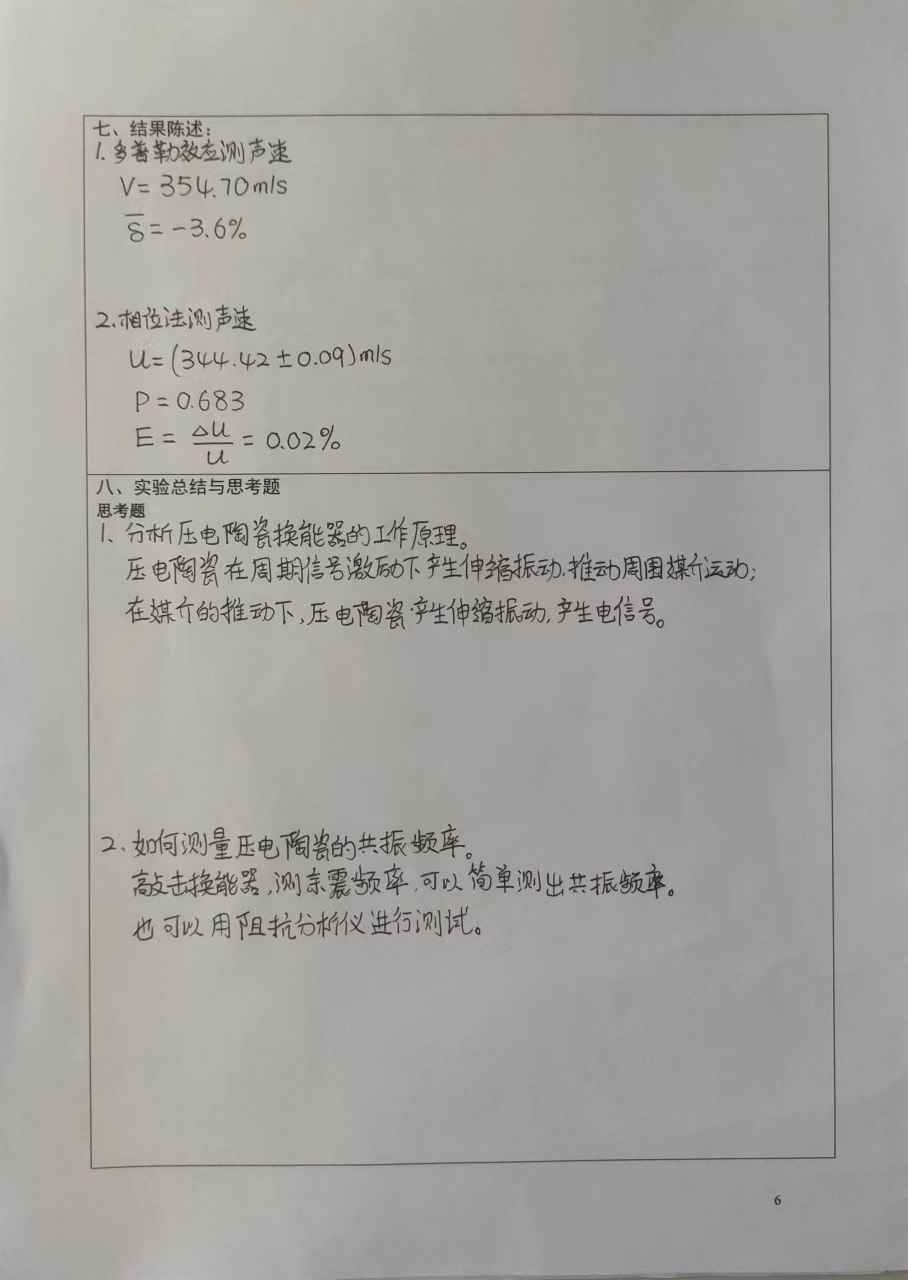 七、结果陈述:
1.多普勒效应测声速
V=354.70m/s
δ̅=-3.6%
2.相位法测声速
u=(344.42±0.09)m/s
P=0.683
E=Δu/u=0.02%
八、实验总结与思考题
思考题
1、分析压电陶瓷换能器的工作原理。
压电陶瓷在周期信号激励下产生伸缩振动,推动周围媒介运动;
在媒介的推动下,压电陶瓷产生伸缩振动,产生电信号。
2、如何测量压电陶瓷的共振频率。
敲击换能器,测余震频率,可以简单测出共振频率。
也可以用阻抗分析仪进行测试。
6